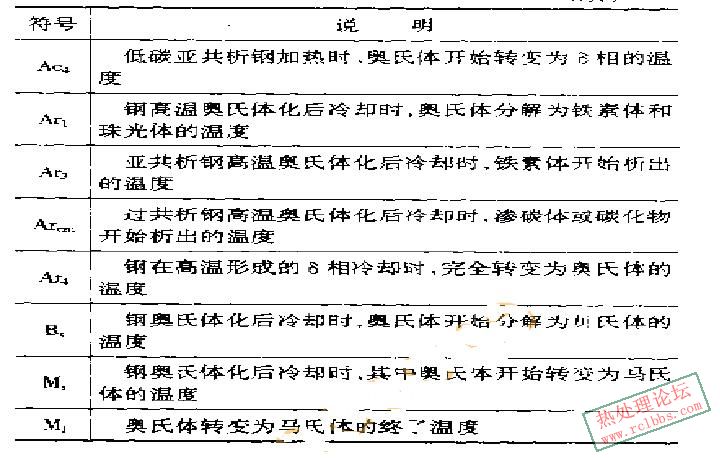 符号 说 明
Ac4 低碳亚共析钢加热时,奥氏体开始转变为δ相的温
度
Ar1 钢高温奥氏体化后冷却时,奥氏体分解为铁素体和
珠光体的温度
Ar3 亚共析钢高温奥氏体化后冷却时,铁素体开始析出
的温度
Arcm 过共析钢高温奥氏体化后冷却时,渗碳体或碳化物
开始析出的温度
Ar4 钢在高温形成的δ相冷却时,完全转变为奥氏体的
温度
Bs 钢奥氏体化后冷却时,奥氏体开始分解为贝氏体的
温度
Ms 钢奥氏体化后冷却时,其中奥氏体开始转变为马氏
体的温度
Mf 奥氏体转变为马氏体的终了温度
热处理论坛
www.rclbbs.com